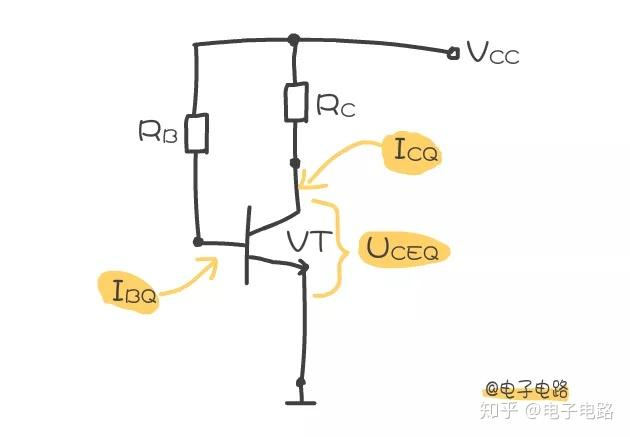 VCC
RC
RB
ICQ
VT
UCEQ
IBQ
@电子电路
知乎 @电子电路